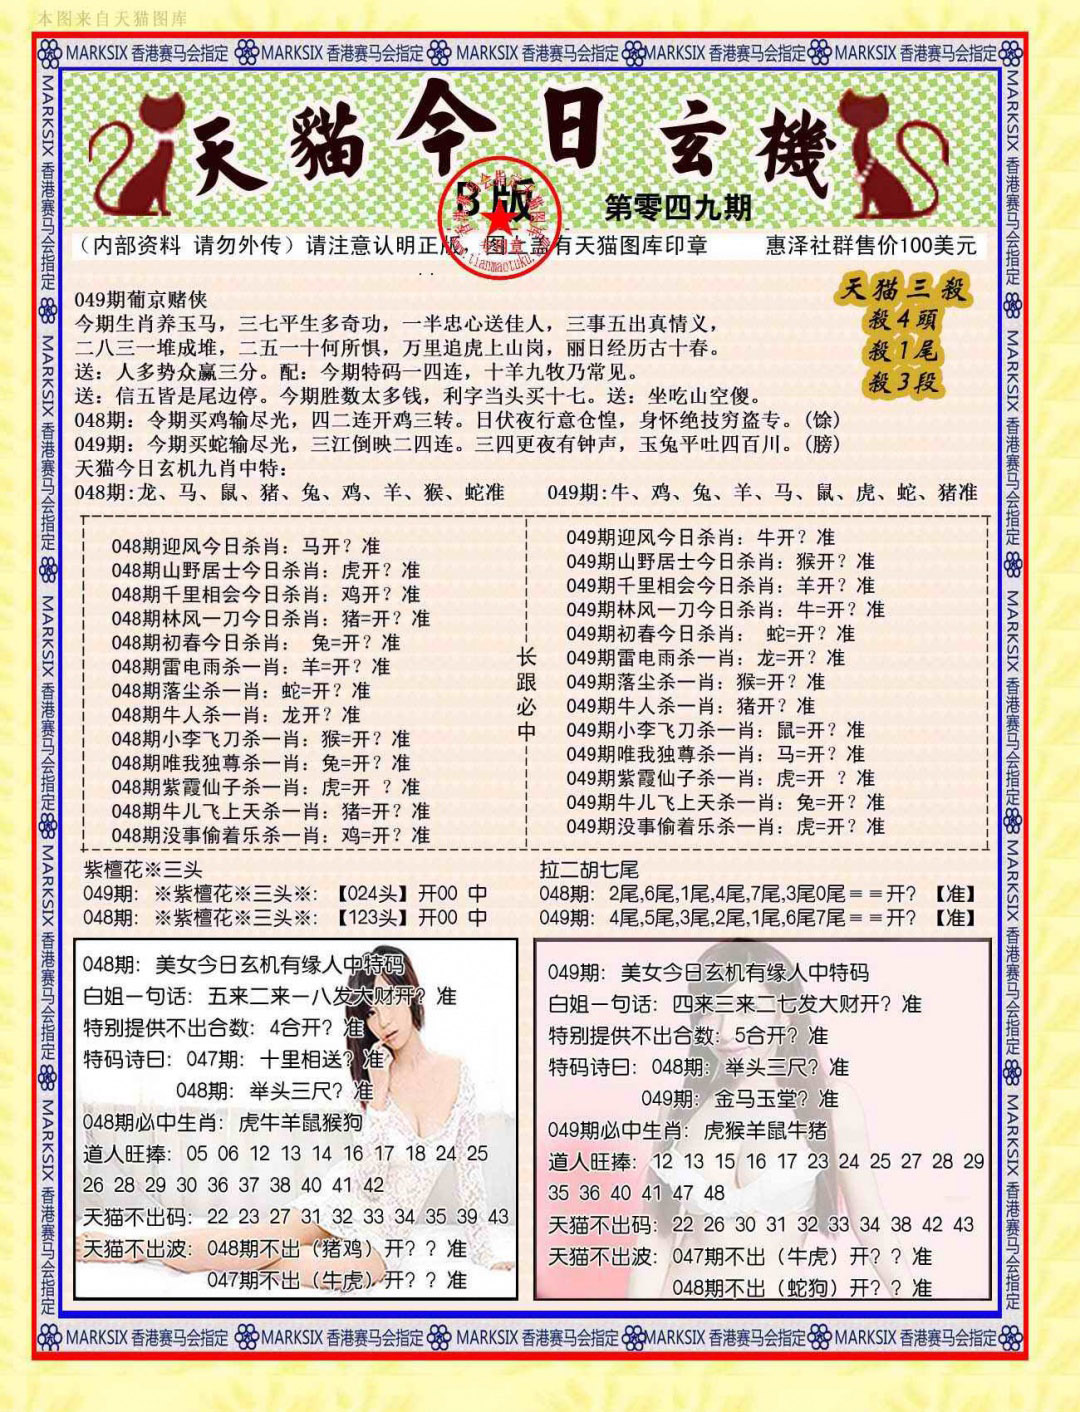 本图来自天猫图库
MARKSIX 香港赛马会指定 MARKSIX 香港赛马会指定 MARKSIX 香港赛马会指定 MARKSIX 香港赛马会指定 MARKSIX 香港赛马会指定
天貓今日玄機
B版
第零四九期
（内部资料 请勿外传）请注意认明正版，图上盖有天猫图库印章 惠泽社群售价100美元
www.tianmaotuku.com
天猫三殺
殺4頭
殺1尾
殺3段
049期葡京赌侠
今期生肖养玉马，三七平生多奇功，一半忠心送佳人，三事五出真情义，
二八三一堆成堆，二五一十何所惧，万里追虎上山岗，丽日经历古十春。
送：人多势众赢三分。配：今期特码一四连，十羊九牧乃常见。
送：信五皆是尾边停。今期胜数太多钱，利字当头买十七。送：坐吃山空傻。
048期：令期买鸡输尽光，四二连开鸡三转。日伏夜行意仓惶，身怀绝技穷盗专。(馀)
049期：今期买蛇输尽光，三江倒映二四连。三四更夜有钟声，玉兔平吐四百川。(膀)
天猫今日玄机九肖中特：
048期:龙、马、鼠、猪、兔、鸡、羊、猴、蛇准 049期:牛、鸡、兔、羊、马、鼠、虎、蛇、猪准
048期迎风今日杀肖：马开？准
048期山野居士今日杀肖：虎开？准
048期千里相会今日杀肖：鸡开？准
048期林风一刀今日杀肖：猪=开？准
048期初春今日杀肖： 兔=开？准
048期雷电雨杀一肖：羊=开？准
048期落尘杀一肖：蛇=开？准
048期牛人杀一肖：龙开？准
048期小李飞刀杀一肖：猴=开？准
048期唯我独尊杀一肖：兔=开？准
048期紫霞仙子杀一肖：虎=开 ？准
048期牛儿飞上天杀一肖：猪=开？准
048期没事偷着乐杀一肖：鸡=开？准
长跟必中
049期迎风今日杀肖：牛开？准
049期山野居士今日杀肖：猴开？准
049期千里相会今日杀肖：羊开？准
049期林风一刀今日杀肖：牛=开？准
049期初春今日杀肖： 蛇=开？准
049期雷电雨杀一肖：龙=开？准
049期落尘杀一肖：猴=开？准
049期牛人杀一肖：猪开？准
049期小李飞刀杀一肖：鼠=开？准
049期唯我独尊杀一肖：马=开？准
049期紫霞仙子杀一肖：虎=开 ？准
049期牛儿飞上天杀一肖：兔=开？准
049期没事偷着乐杀一肖：虎=开？准
紫檀花※三头
049期：※紫檀花※三头※：【024头】开00 中
048期：※紫檀花※三头※：【123头】开00 中
拉二胡七尾
048期：2尾,6尾,1尾,4尾,7尾,3尾0尾＝＝开？【准】
049期：4尾,5尾,3尾,2尾,1尾,6尾7尾＝＝开？【准】
048期：美女今日玄机有缘人中特码
白姐一句话：五来二来一八发大财开？准
特别提供不出合数：4合开？准
特码诗曰：047期：十里相送？准
048期：举头三尺？准
048期必中生肖：虎牛羊鼠猴狗
道人旺捧：05 06 12 13 14 16 17 18 24 25
26 28 29 30 36 37 38 40 41 42
天猫不出码：22 23 27 31 32 33 34 35 39 43
天猫不出波：048期不出（猪鸡）开？？准
047期不出（牛虎）开？？准
049期：美女今日玄机有缘人中特码
白姐一句话：四来三来二七发大财开？准
特别提供不出合数：5合开？准
特码诗曰：048期：举头三尺？准
049期：金马玉堂？准
049期必中生肖：虎猴羊鼠牛猪
道人旺捧：12 13 15 16 17 23 24 25 27 28 29
35 36 40 41 47 48
天猫不出码：22 26 30 31 32 33 34 38 42 43
天猫不出波：047期不出（牛虎）开？？准
048期不出（蛇狗）开？？准
MARKSIX 香港赛马会指定 MARKSIX 香港赛马会指定 MARKSIX 香港赛马会指定 MARKSIX 香港赛马会指定 MARKSIX 香港赛马会指定